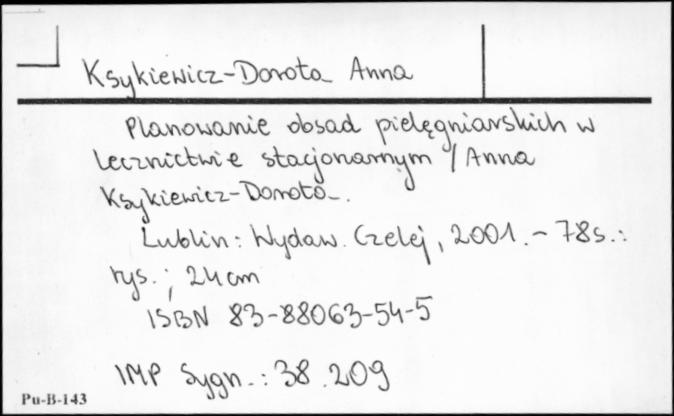 Ksykiewicz-Dorota Anna
Planowanie obsad pielęgniarskich w
lecznictwie stacjonarnym / Anna
Ksykiewicz-Dorota.
Lublin: Wydaw. Czelej, 2001. - 78s.:
rys.; 24cm
ISBN 83-88063-54-5
IMP Sygn.: 38.209
Pu-B-143